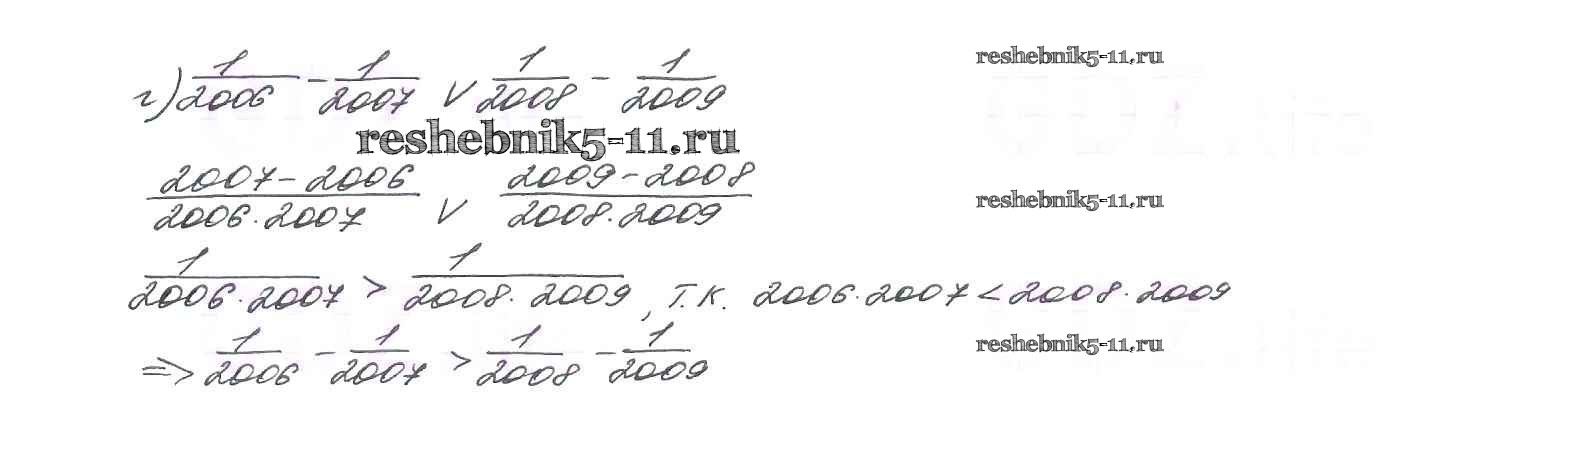 г) 1/2006 - 1/2007 V 1/2008 - 1/2009
reshebnik5-11.ru
reshebnik5-11.ru
(2007-2006)/(2006·2007) V (2009-2008)/(2008·2009)
reshebnik5-11.ru
1/(2006·2007) > 1/(2008·2009), т.к. 2006·2007 < 2008·2009
=> 1/2006 - 1/2007 > 1/2008 - 1/2009
reshebnik5-11.ru